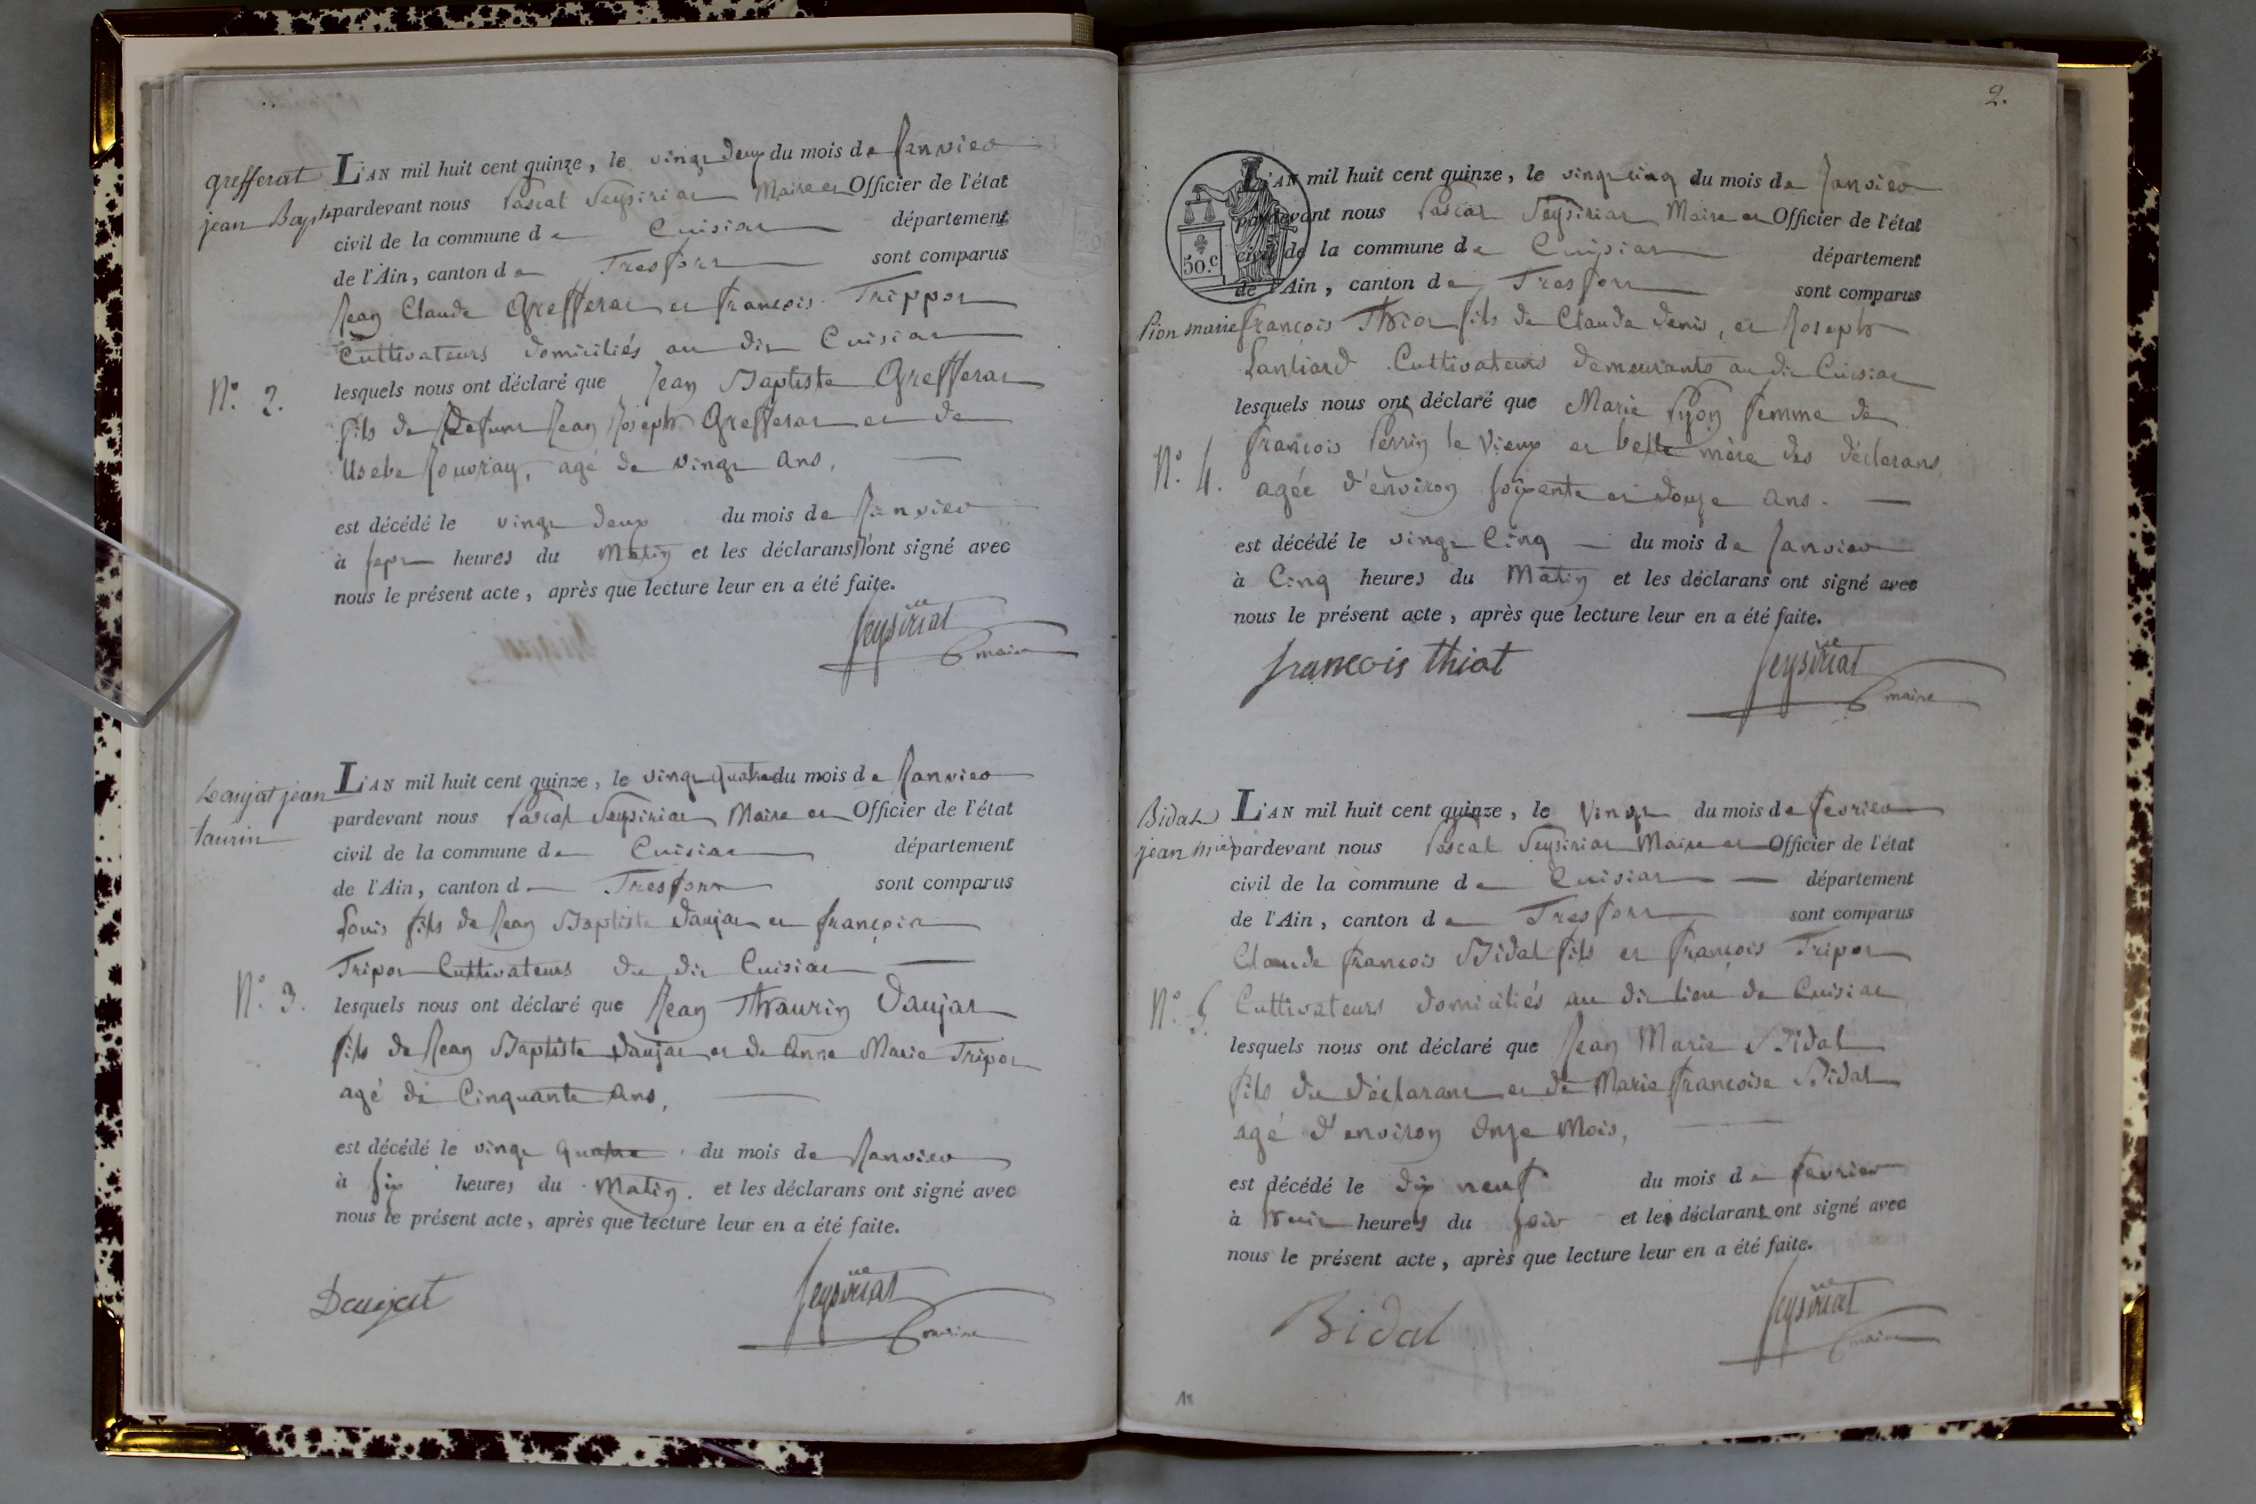 grefferat
jean Bapte
N.º 2.
L'AN mil huit cent quinze, le vingt deux du mois de Janvier
pardevant nous Pascal Seysiriat Maire et Officier de l'état
civil de la commune de Cuisiat département
de l'Ain, canton de Treffort sont comparus
Jean Claude Grefferat et françois Trippot
Cultivateurs domiciliés au dit Cuisiat
lesquels nous ont déclaré que Jean Baptiste Grefferat
fils de Defunt Jean Joseph Grefferat et de
Usebe Jouvray, agé de vingt ans,
est décédé le vingt deux du mois de Janvier
à sept heures du Matin et les déclarans n'ont signé avec
nous le présent acte, après que lecture leur en a été faite.
Seysiriat
maire
Daujat jean
taurin
N.º 3.
L'AN mil huit cent quinze, le vingt quatre du mois de Janvier
pardevant nous Pascal Seysiriat Maire et Officier de l'état
civil de la commune de Cuisiat département
de l'Ain, canton de Treffort sont comparus
Louis fils de Jean Baptiste Daujat et françois
Tripot Cultivateurs du dit Cuisiat
lesquels nous ont déclaré que Jean Thaurin Daujat
fils de Jean Baptiste Daujat et de Anne Marie Tripot
agé de Cinquante ans,
est décédé le vingt quatre du mois de Janvier
à six heures du Matin. et les déclarans ont signé avec
nous le présent acte, après que lecture leur en a été faite.
Daujat
Seysiriat
maire
2.
50.c
Pion marie
N.º 4.
L'AN mil huit cent quinze, le vingt cinq du mois de Janvier
pardevant nous Pascal Seysiriat Maire et Officier de l'état
civil de la commune de Cuisiat département
de l'Ain, canton de Treffort sont comparus
françois Thiot fils de Claude denis, et Joseph
Lantiard Cultivateurs demeurants au dit Cuisiat
lesquels nous ont déclaré que Marie Pyon femme de
françois Perrin le Vieux et belle mère des déclarans
agée d'environ soixante et douze ans.
est décédé le vingt Cinq du mois de Janvier
à Cinq heures du Matin et les déclarans ont signé avec
nous le présent acte, après que lecture leur en a été faite.
francois thiot
Seysiriat
maire
Bidal
jean mie
N.º 5.
L'AN mil huit cent quinze, le Vingt du mois de fevrier
pardevant nous Pascal Seysiriat Maire et Officier de l'état
civil de la commune de Cuisiat département
de l'Ain, canton de Treffort sont comparus
Claude françois Bidal fils et françois Tripot
Cultivateurs domiciliés au dit lieu de Cuisiat
lesquels nous ont déclaré que Jean Marie Bidal
fils du déclarant et de Marie françoise Bidal
agé d'environ onze Mois,
est décédé le dix neuf du mois de fevrier
à huit heures du soir et les déclarant ont signé avec
nous le présent acte, après que lecture leur en a été faite.
Bidal
Seysiriat
maire